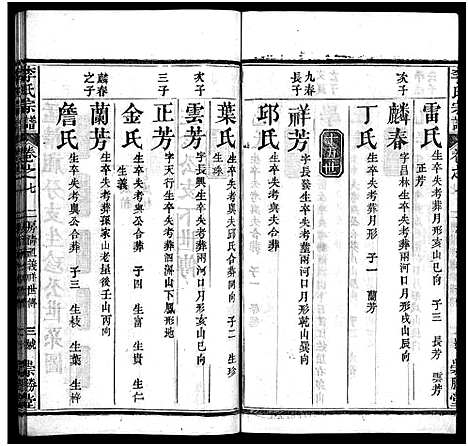 雷氏
生卒失考與公合葬 子三 長芳 雲芳
正芳
次子
麟春
字昌林生卒失考葬兩河口月形戌山辰向
丁氏
生卒失考葬月形 子一 蘭芳
九春
長子
祥芳
字長發生卒失考葬董兩河口月形乾山巽向
邱氏
生卒失考葬兩河口月形亥山巳向 子二 生
葉氏
生卒失考與夫邱氏合葬 子二 生
生珍
次子
雲芳
字長興生卒失考葬兩河口月形亥山巳向
三子
正芳
字天行生卒失考葬泗洲山下鳳形地
金氏
生卒失考與公合葬 子四 生富 生貴 生仁
生義
麟春
之子
蘭芳
生卒失考葬張家山老屋後壬山丙向
詹氏
生卒失考與公合葬 子三 生枝 生葉 生梓
李氏宗譜
卷之七
二房
三號
崇勝堂